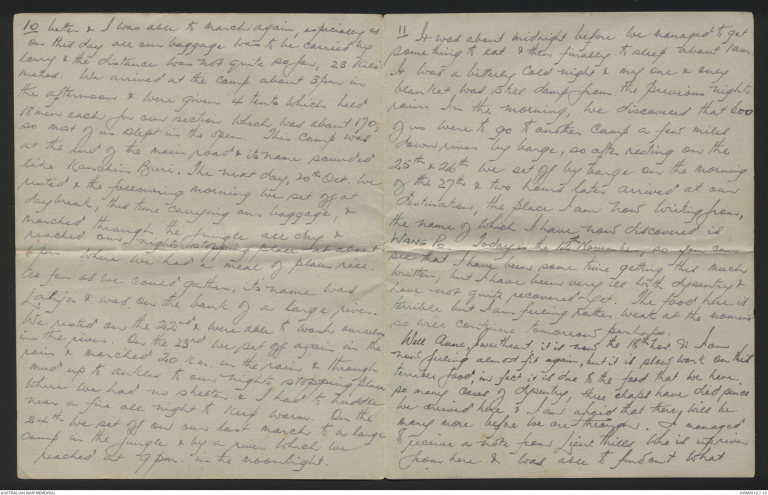 10 better & I was able to march again, especially as
on this day all our baggage was to be carried by
lorry & the distance was not quite so far, 23 kilo-
metres. We arrived at the camp about 3 pm in
the afternoon & were given 4 tents which held
18 men each for our section which was about 170,
so most of us slept in the open. This camp was
at the end of the main road & its name sounded
like Kanchim Buri. The next day, 20th Oct. we
rested & the following morning we set off at
daybreak, this time carrying our baggage, &
marched through the jungle all day &
reached our night's stopping place at about
6 pm. where we had a meal of plain rice.
As far as we could gather, its name was
Latija & was on the bank of a large river.
We rested on the 22nd & were able to wash ourselves
in the river. On the 23rd we set off again in the
rain & marched 20 km. in the rain & through
mud up to ankles to our night's stopping place
where we had no shelter & I had to huddle
near a fire all night to keep warm. On the
24th we set off on our last march to a large
camp in the jungle & by a river which we
reached at 9 pm. in the moonlight.
11 It was about midnight before we managed to get
something to eat & then finally to sleep about 1 am.
It was a bitterly cold night & my one & only
blanket was still damp from the previous night's
rain. In the morning, we discovered that 600
of us were to go to another camp a few miles
down river by barge, so after resting on the
25th & 26th we set off by barge on the morning
of the 27th & two hours later arrived at our
destination, the place I am now writing from,
the name of which I have now discovered is
WANG PO. Today is the 12th November, so you can
see that I have been some time getting this much
written, but I have been very ill with dysentry &
have not quite recovered yet. The food here is
terrible but I am feeling rather weak at the moment
so will continue tomorrow perhaps.
Well Anne, sweetheart, it is now the 18th Nov. & I am
now feeling almost fit again, but it is slow work on this
terrible food, in fact it is due to the food that we have
so many cases of dysentry, three chaps have died since
we arrived here & I am afraid that there will be
many more before we are through. I managed
to receive a note from Lieut Mills who is up river
from here & was able to find out what
AUSTRALIAN WAR MEMORIAL
AWM2019.7.15